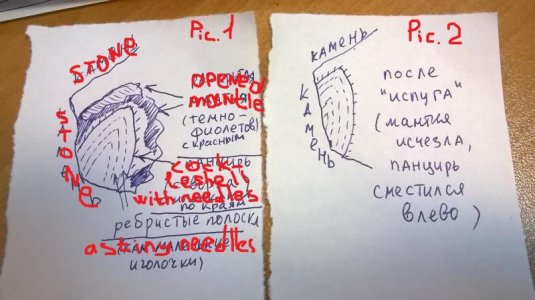 Pic. 1
STONE
OPENED
MANTLE
(ТЕМНО-
ФИОЛЕТОВ)
С КРАСНЫМ
STONE
COCK
LESHELL
with needles
ПО КРАЯМ
РЕБРИСТЫЕ ПОЛОСКИ
a string needles
ИГОЛОЧКИ)
Pic. 2
КАМЕНЬ
КАМЕНЬ
ПОСЛЕ
"ИСПУГА"
(МАНТИЯ
ИСЧЕЗЛА,
ПАНЦИРЬ
СМЕСТИЛСЯ
ВЛЕВО)